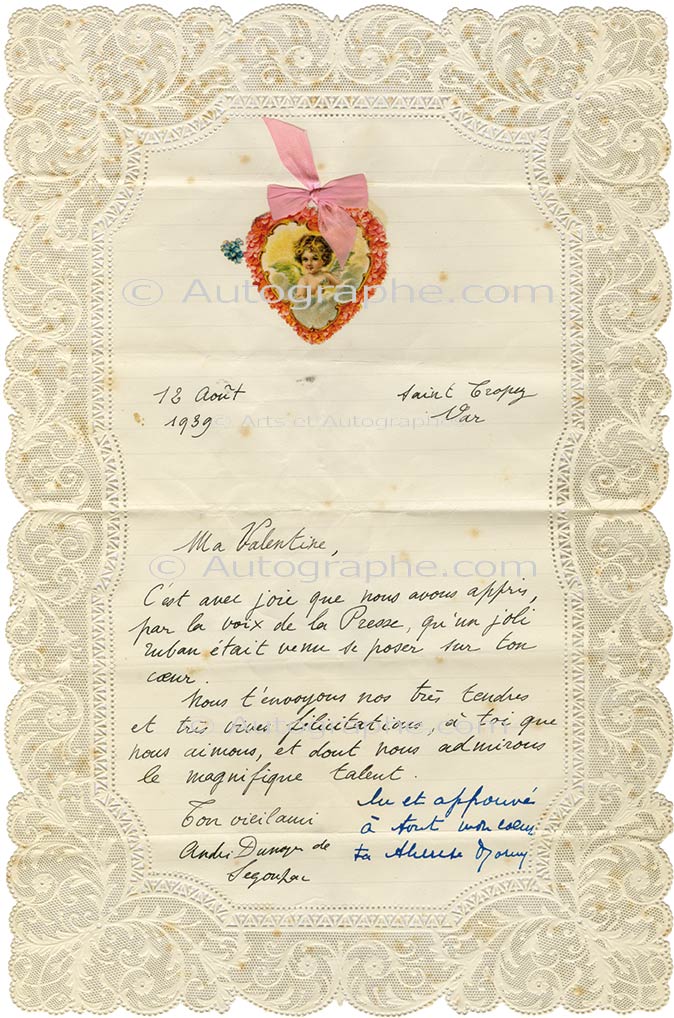 © Autographe.com
12 Août Saint Tropez
1939 Var
© Arts et Autographes
Ma Valentine,
© Autographe.com
C'est avec joie que nous avons appris,
par la voix de la Presse, qu'un joli
ruban était venu se poser sur ton
cœur.
Nous t'envoyons nos très tendres
et très vives félicitations, à toi que
© Autographe.com
nous aimons, et dont nous admirons
le magnifique talent.
Ton vieil ami
André Dunoyer de
Segonzac
Lu et approuvé
à tout mon cœur
ta Thérèse Dorny